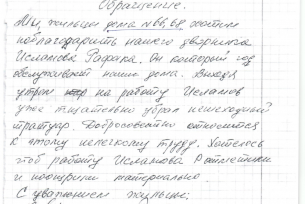 Обращение.
Мы, жильцы дома № 66, 68 хотим
поблагодарить нашего дворника
Исламова Рафика. Он который год
обслуживает наши дома. Выходя
утром на работу Исламов
уже тщательно убрал пешеходный
тратуар. Добросовестно относится
к этому нелегкому труду. Хотелось
чтоб работу Исламова отметили
и поощрили материально.
С уважением жильцы: